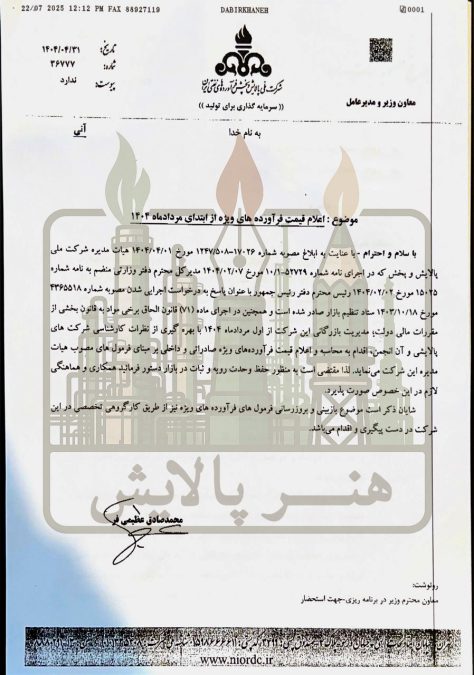 22/07 2025 12:12 PM FAX 88927119 DABIRKHANEH 0001
تاریخ: ۱۴۰۴/۰۴/۳۱
شماره: ۳۶۷۷۷
پیوست: ندارد
شرکت ملی پالایش و پخش فرآورده‌های نفتی ایران
(( سرمایه گذاری برای تولید ))
معاون وزیر و مدیرعامل
به نام خدا
آنی
موضوع : اعلام قیمت فرآورده های ویژه از ابتدای مردادماه ۱۴۰۴
با سلام و احترام - با عنایت به ابلاغ مصوبه شماره ۱۷۰۲۶-۱۲۴۷/۵۰۸ مورخ ۱۴۰۴/۰۴/۰۱ هیات مدیره شرکت ملی
پالایش و پخش که در اجرای نامه شماره ۵۲۷۲۹-۱۰/۱ مورخ ۱۴۰۴/۰۲/۰۷ مدیرکل محترم دفتر وزارتی منضم به نامه شماره
۱۵۰۲۵ مورخ ۱۴۰۴/۰۲/۰۲ رئیس محترم دفتر رئیس جمهور با عنوان پاسخ به درخواست اجرایی شدن مصوبه شماره ۴۳۶۵۵۱۸
مورخ ۱۴۰۳/۱۰/۱۸ ستاد تنظیم بازار صادر شده است و همچنین در اجرای ماده (۷۱) قانون الحاق برخی مواد به قانون بخشی از
مقررات مالی دولت؛ مدیریت بازرگانی این شرکت از اول مردادماه ۱۴۰۴ با بهره گیری از نظرات کارشناسی شرکت های
پالایشی و آن انجمن، اقدام به محاسبه و اعلام قیمت فرآورده‌های ویژه صادراتی و داخلی بر مبنای فرمول های مصوب هیات
مدیره این شرکت می‌نماید. لذا مقتضی است به منظور حفظ وحدت رویه و ثبات در بازار دستور فرمائید همکاری و هماهنگی
لازم در این خصوص صورت پذیرد.
شایان ذکر است موضوع بازبینی و بروزرسانی فرمول های فرآورده های ویژه نیز از طریق کارگروهی تخصصی در این
شرکت در دست پیگیری و اقدام می‌باشد.
هنر پالایش
محمدصادق عظیمی فر
رونوشت:
معاون محترم وزیر در برنامه ریزی-جهت استحضار
www.niordc.ir